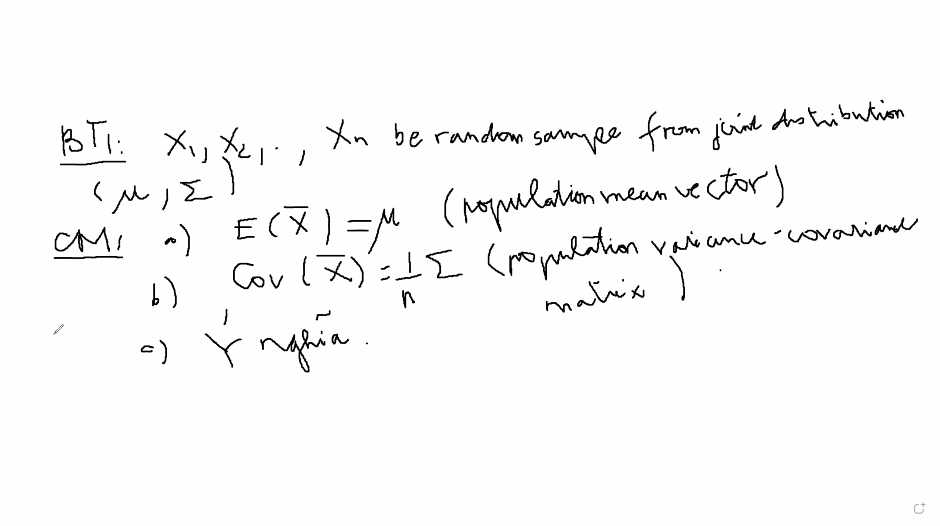 BT1: X₁, X₂, .., Xn be random sampe from joint distribution
(μ, Σ)
CM: a) E(X̄) = μ (population mean vector)
b) Cov(X̄) = 1/n Σ (population variance-covariance
matrix)
c) Ý nghĩa.